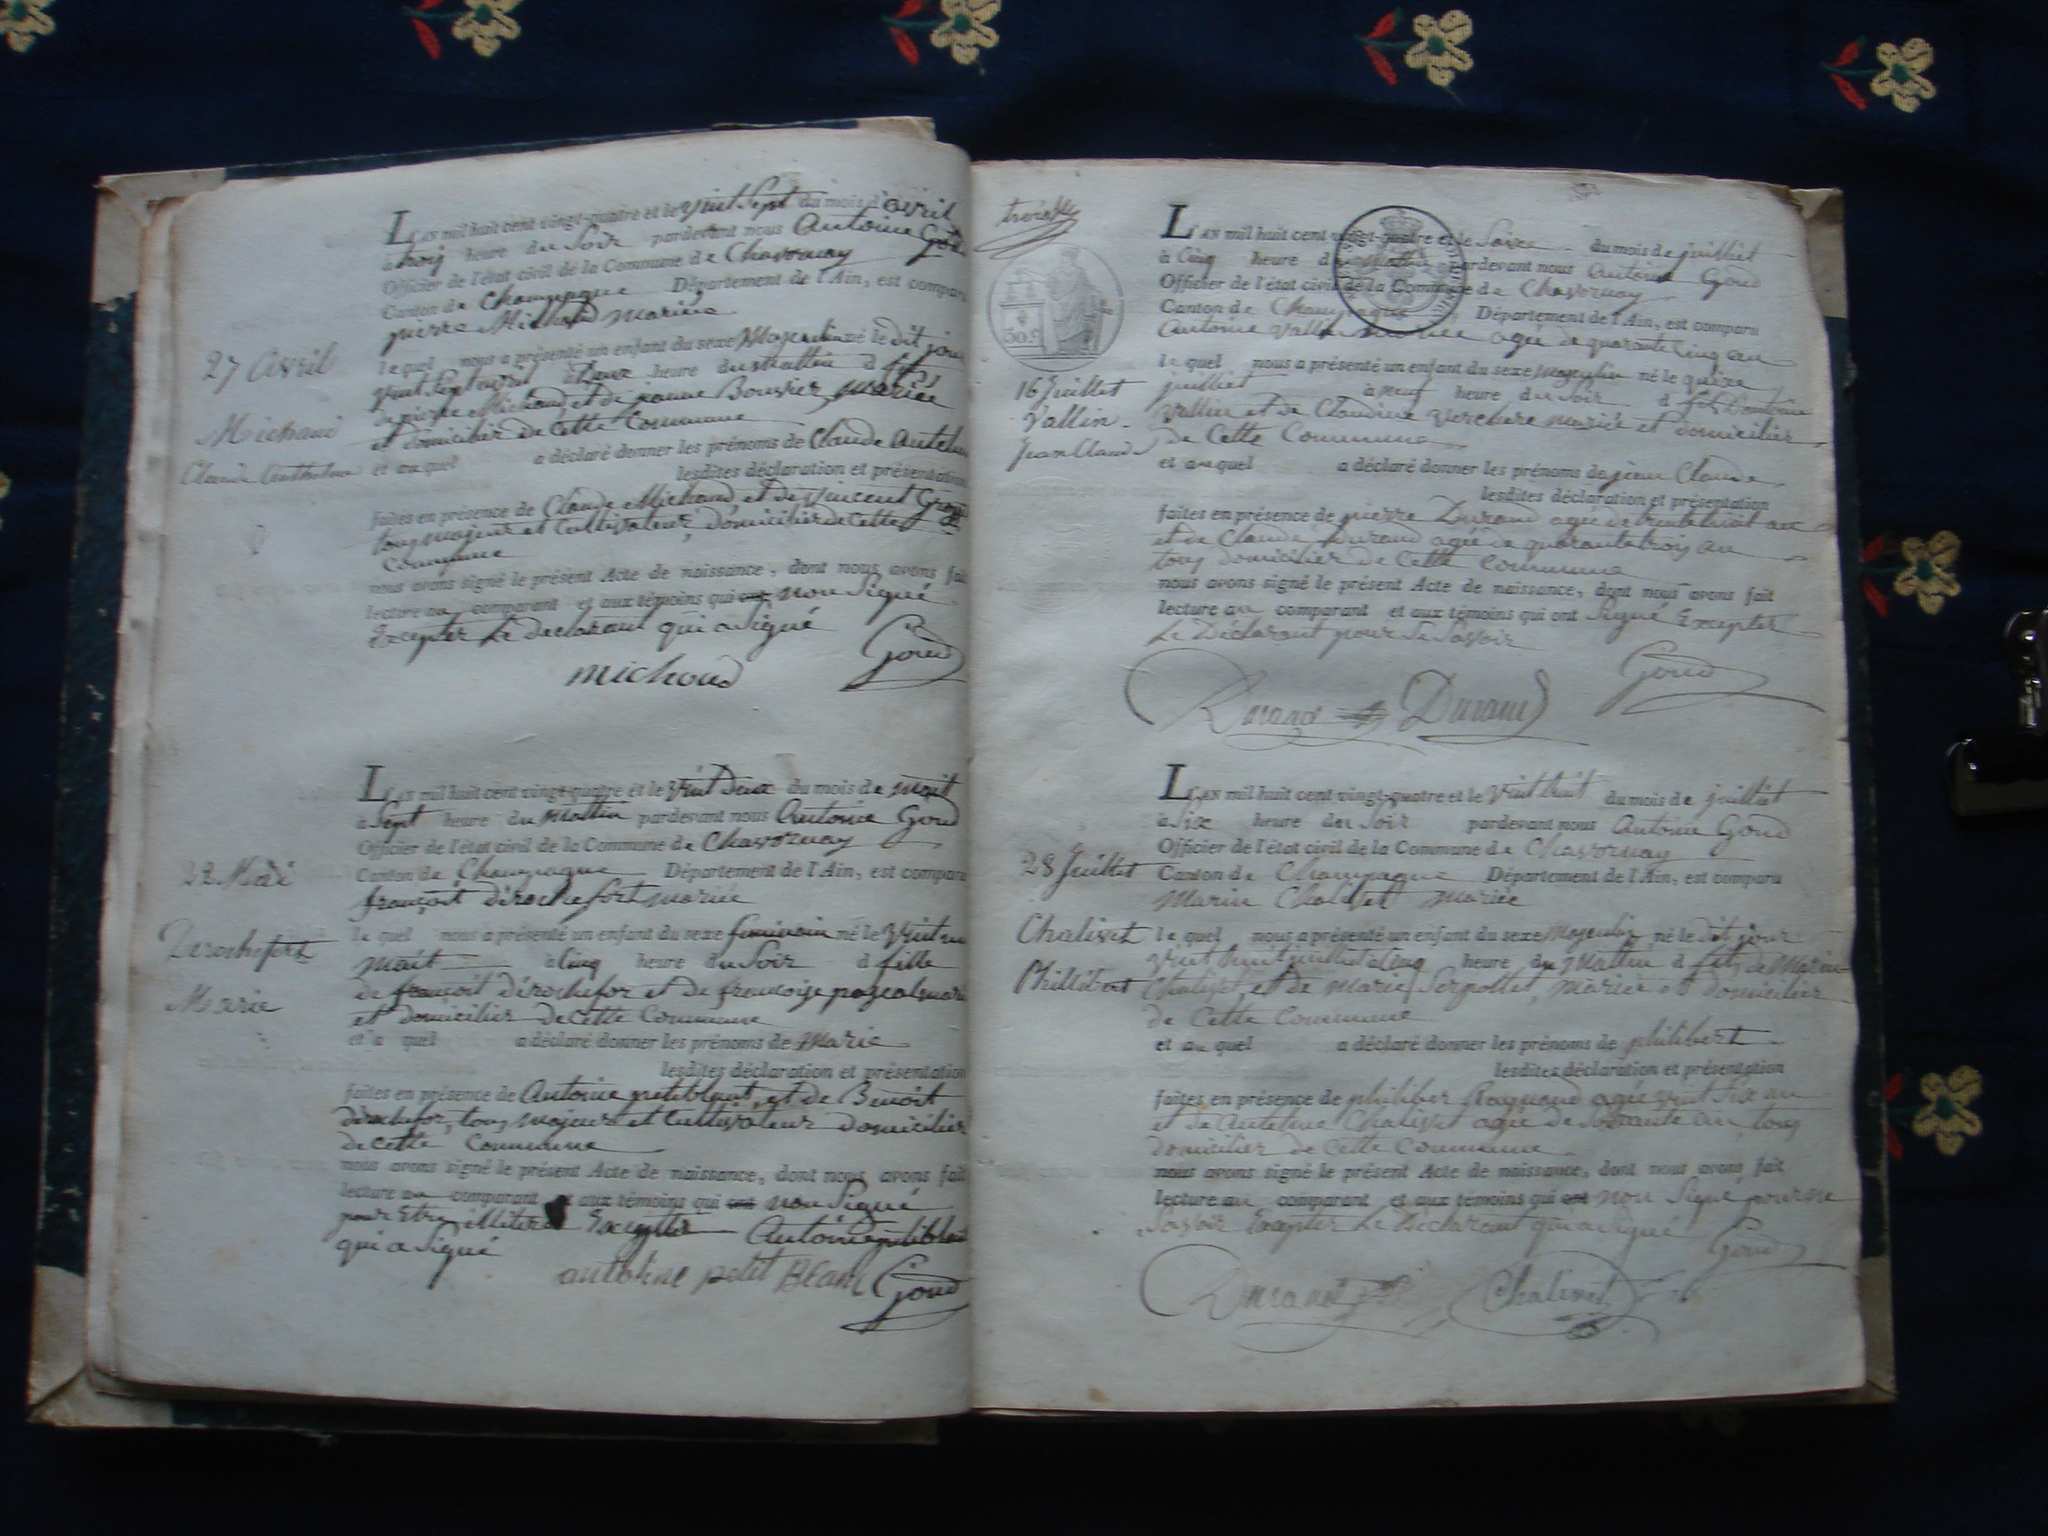 L'an mil huit cent vingt-quatre et le vint Sept du mois d'avril
à trois heure du Soir pardevant nous Antoine Goud
Officier de l'état civil de la Commune de Chavornay
Canton de Champagne Département de l'Ain, est comparu
pierre Michaud mariée
27 Avril
Michaud
Claude Anthelme
le quel nous a présenté un enfant du sexe Masculin né le dit jour
vint Sept avril à heure du Mattin d
de pierre Michaud et de jeanne Bouvier mariés
et domicilier de Cette Commune
et au quel a déclaré donner les prénoms de Claude Antelme
lesdites déclaration et présentation
faites en présence de Claude Michaud et de Vincent
tous majeur et Cultivateur, domicilier de Cette
Commune
nous avons signé le présent Acte de naissance, dont nous avons fait
lecture au comparant et aux témoins qui ont non Signé
Excepter Le declarant qui a Signé
michoud Goud
L'an mil huit cent vingt-quatre et le vint deux du mois de mait
à Sept heure du Mattin pardevant nous Antoine Goud
Officier de l'état civil de la Commune de Chavornay
Canton de Champagne Département de l'Ain, est comparu
françoit dérochefort mariée
22 Mai
Derochefort
Marie
le quel nous a présenté un enfant du sexe feminain né le vint un
mait à Cinq heure du Soir d fille
de françoit dérochefor et de françoise pascal marié
et domicilier de Cette Commune
et a quel a déclaré donner les prénoms de Marie
lesdites déclaration et présentation
faites en présence de Antoine petitblant, et de Benoit
dérochefor, tous majeur et Cultivateur domicilier
de Cette Commune
nous avons signé le présent Acte de naissance, dont nous avons fait
lecture au comparant et aux témoins qui ont non Signé
pour Etre illiteré Excepter Antoine petitblant
qui a Signé
antoine petit Blanc Goud
troisième
30 c.
L'an mil huit cent vingt-quatre et le Saize du mois de juilliet
à Cinq heure du Mattin pardevant nous Antoine Goud
Officier de l'état civil de la Commune de Chavornay
Canton de Champagne Département de l'Ain, est comparu
Antoine Vallin agée de quarante Cinq an
16 Juillet
Vallin
Jean Claude
le quel nous a présenté un enfant du sexe masculin né le quinze
juilliet à neuf heure du Soir d fils D'antoine
Vallin et de Claudine Verchere mariés et domicilier
de Cette Commune
et au quel a déclaré donner les prénoms de jean Claude
lesdites déclaration et présentation
faites en présence de pierre Durand agée de trente huit an
et de Claude Durand agée de quarante trois an
tous domicilier de Cette Commune
nous avons signé le présent Acte de naissance, dont nous avons fait
lecture au comparant et aux témoins qui ont Signé Excepter
Le Déclarant pour ne Savoir
Durand Durand Goud
L'an mil huit cent vingt-quatre et le vint huit du mois de juilliet
à Six heure du Soir pardevant nous Antoine Goud
Officier de l'état civil de la Commune de Chavornay
Canton de Champagne Département de l'Ain, est comparu
Marin Chaliset mariée
28 Juillet
Chaliset
Phillibert
le quel nous a présenté un enfant du sexe Masculin né le dit jour
vint huit juilliet à Cinq heure du Mattin d fils de Marin
Chaliset, et de marie Serpollet, mariée et domicilier
de Cette Commune
et au quel a déclaré donner les prénoms de philibert
lesdites déclaration et présentation
faites en présence de philiber agée vint Six an
et de Antelme Chaliset agée de Soixante an tous
domicilier de Cette Commune
nous avons signé le présent Acte de naissance, dont nous avons fait
lecture au comparant et aux témoins qui ont non Signé pour ne
Savoir Excepter Le Déclarant qui a Signé
Goud
Durand Chaliset